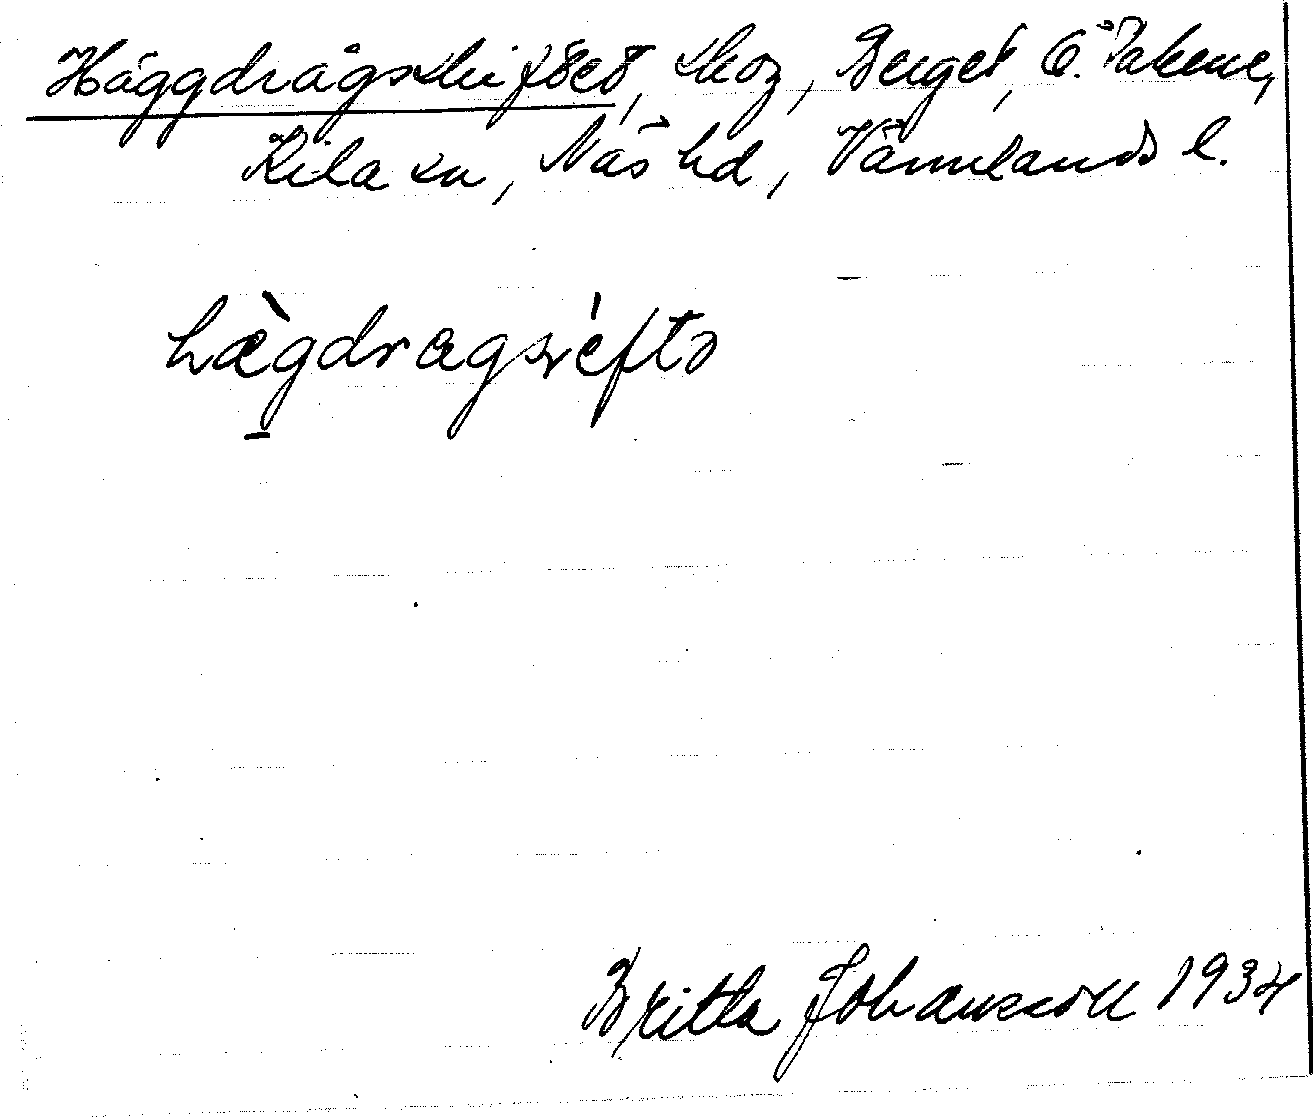 Häggdragsskiftet, skog, Berget, Ö. Takene,
Kila sn, Näs hd, Värmlands l.
hægdragsʃefta
Britta Johansson 1934